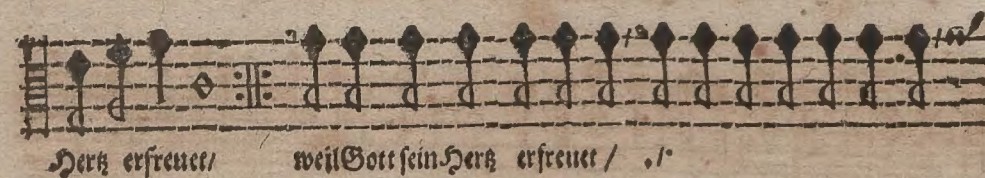 Hertz erfreuet/ weil Gott sein Hertz erfreuet / ./.